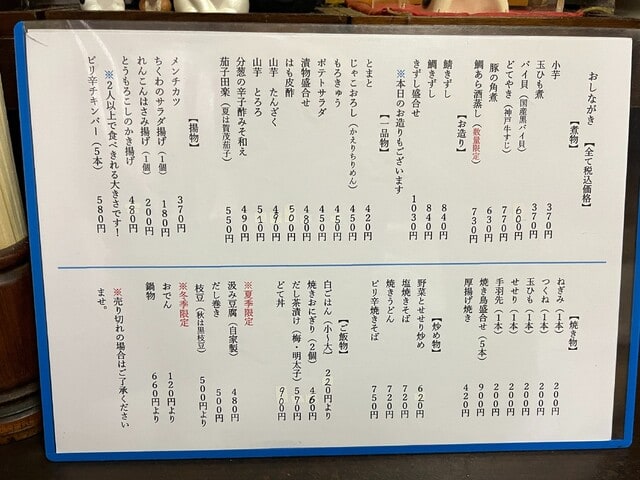 おしながき 【全て税込価格】
【煮物】
小芋 370円
玉ひも煮 370円
バイ貝（国産黒バイ貝） 600円
どてやき（神戸牛すじ） 770円
豚の角煮 630円
鯛あら酒蒸し（数量限定） 730円
【お造り】
鯖きずし 840円
鯛きずし 840円
きずし盛合せ 1030円
※本日のお造りもございます
【一品物】
とまと 420円
じゃこおろし（かえりちりめん） 450円
もろきゅう 450円
ポテトサラダ 450円
漬物盛合せ 480円
はも皮酢 500円
山芋 たんざく 490円
山芋 とろろ 510円
分葱の辛子酢みそ和え 490円
茄子田楽（夏は賀茂茄子） 550円
【揚物】
メンチカツ 370円
ちくわのサラダ揚げ（1個） 180円
れんこんはさみ揚げ（1個） 200円
とうもろこしのかき揚げ 480円
※2人以上で食べきれる大きさです！
ピリ辛チキンバー（5本） 580円
【焼き物】
ねぎみ（1本） 200円
つくね（1本） 200円
玉ひも（1本） 200円
せせり（1本） 200円
手羽先（1本） 200円
焼き鳥盛合せ（5本） 900円
厚揚げ焼き 420円
【炒め物】
野菜とせせり炒め 620円
塩焼きそば 720円
焼きうどん 720円
ピリ辛焼きそば 750円
【ご飯物】
白ごはん（小〜大） 220円より
焼きおにぎり（2個） 460円
だし茶漬け（梅・明太子） 570円
どて丼 900円
※夏季限定
汲み豆腐（自家製） 480円
だし巻き 500円
枝豆（秋は黒枝豆） 500円より
※冬季限定
おでん 120円より
鍋物 660円より
※売り切れの場合はご了承ください
ませ。